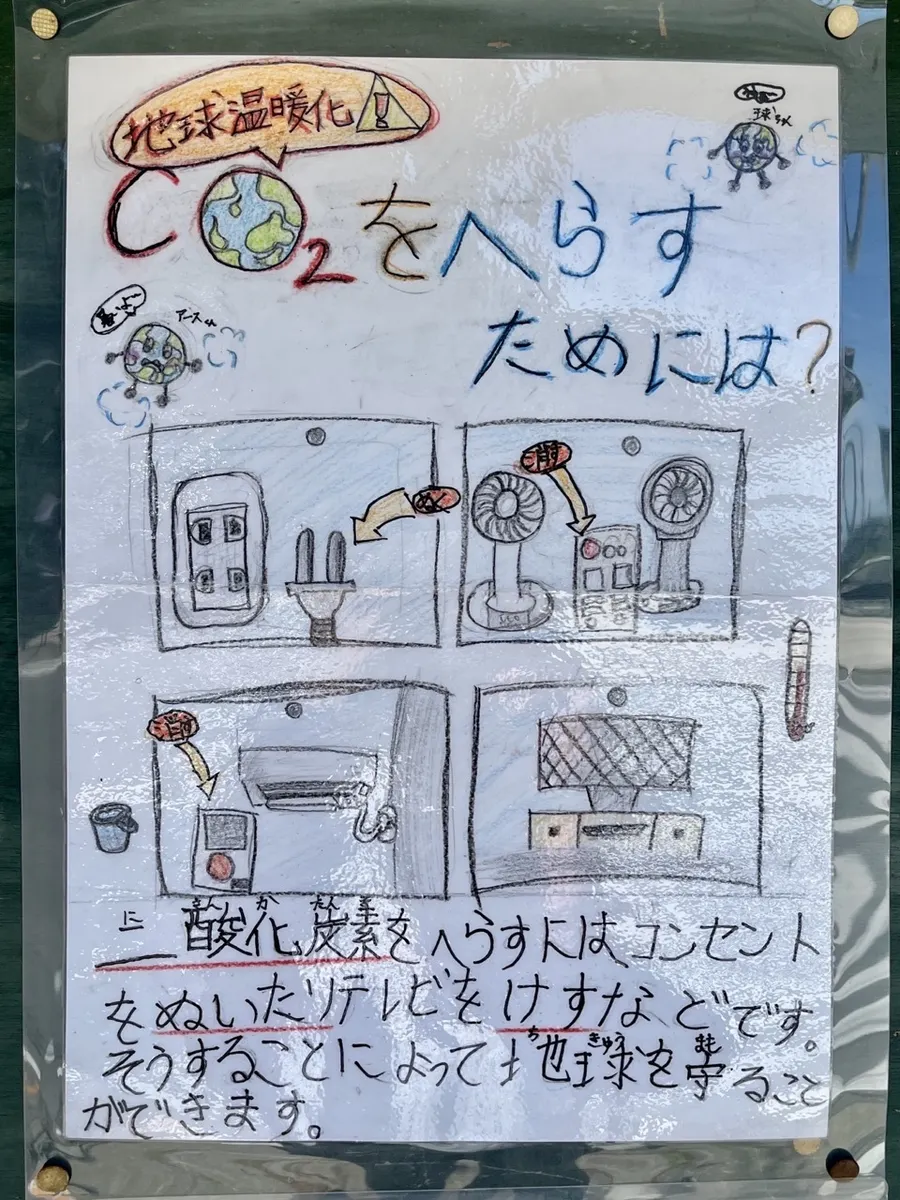 地球温暖化
球ちゃん
CO2をへらす
暑いよ〜
アースくん
ためには?
ぬく
消す
消す
に さん か たん そ
二酸化炭素をへらすにはコンセント
をぬいたりテレビをけすなどです。
ち きゅう まも
そうすることによって地球を守ること
ができます。